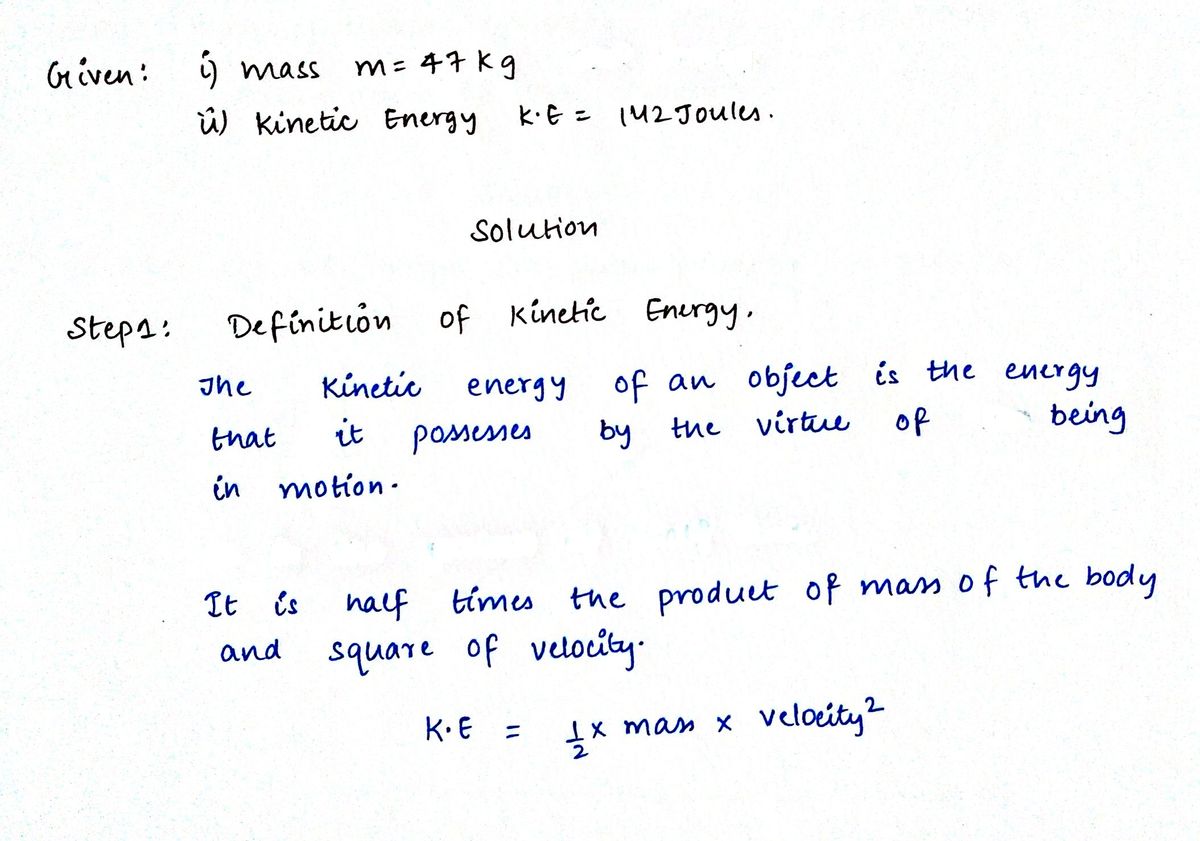 Given: i) mass m = 47 kg
ii) Kinetic Energy K.E = 142 Joules.
Solution
Step1: Definition of Kinetic Energy.
The Kinetic energy of an object is the energy
that it possesses by the virtue of being
in motion.
It is half times the product of mass of the body
and square of velocity.
K.E = 1/2 x mass x velocity²